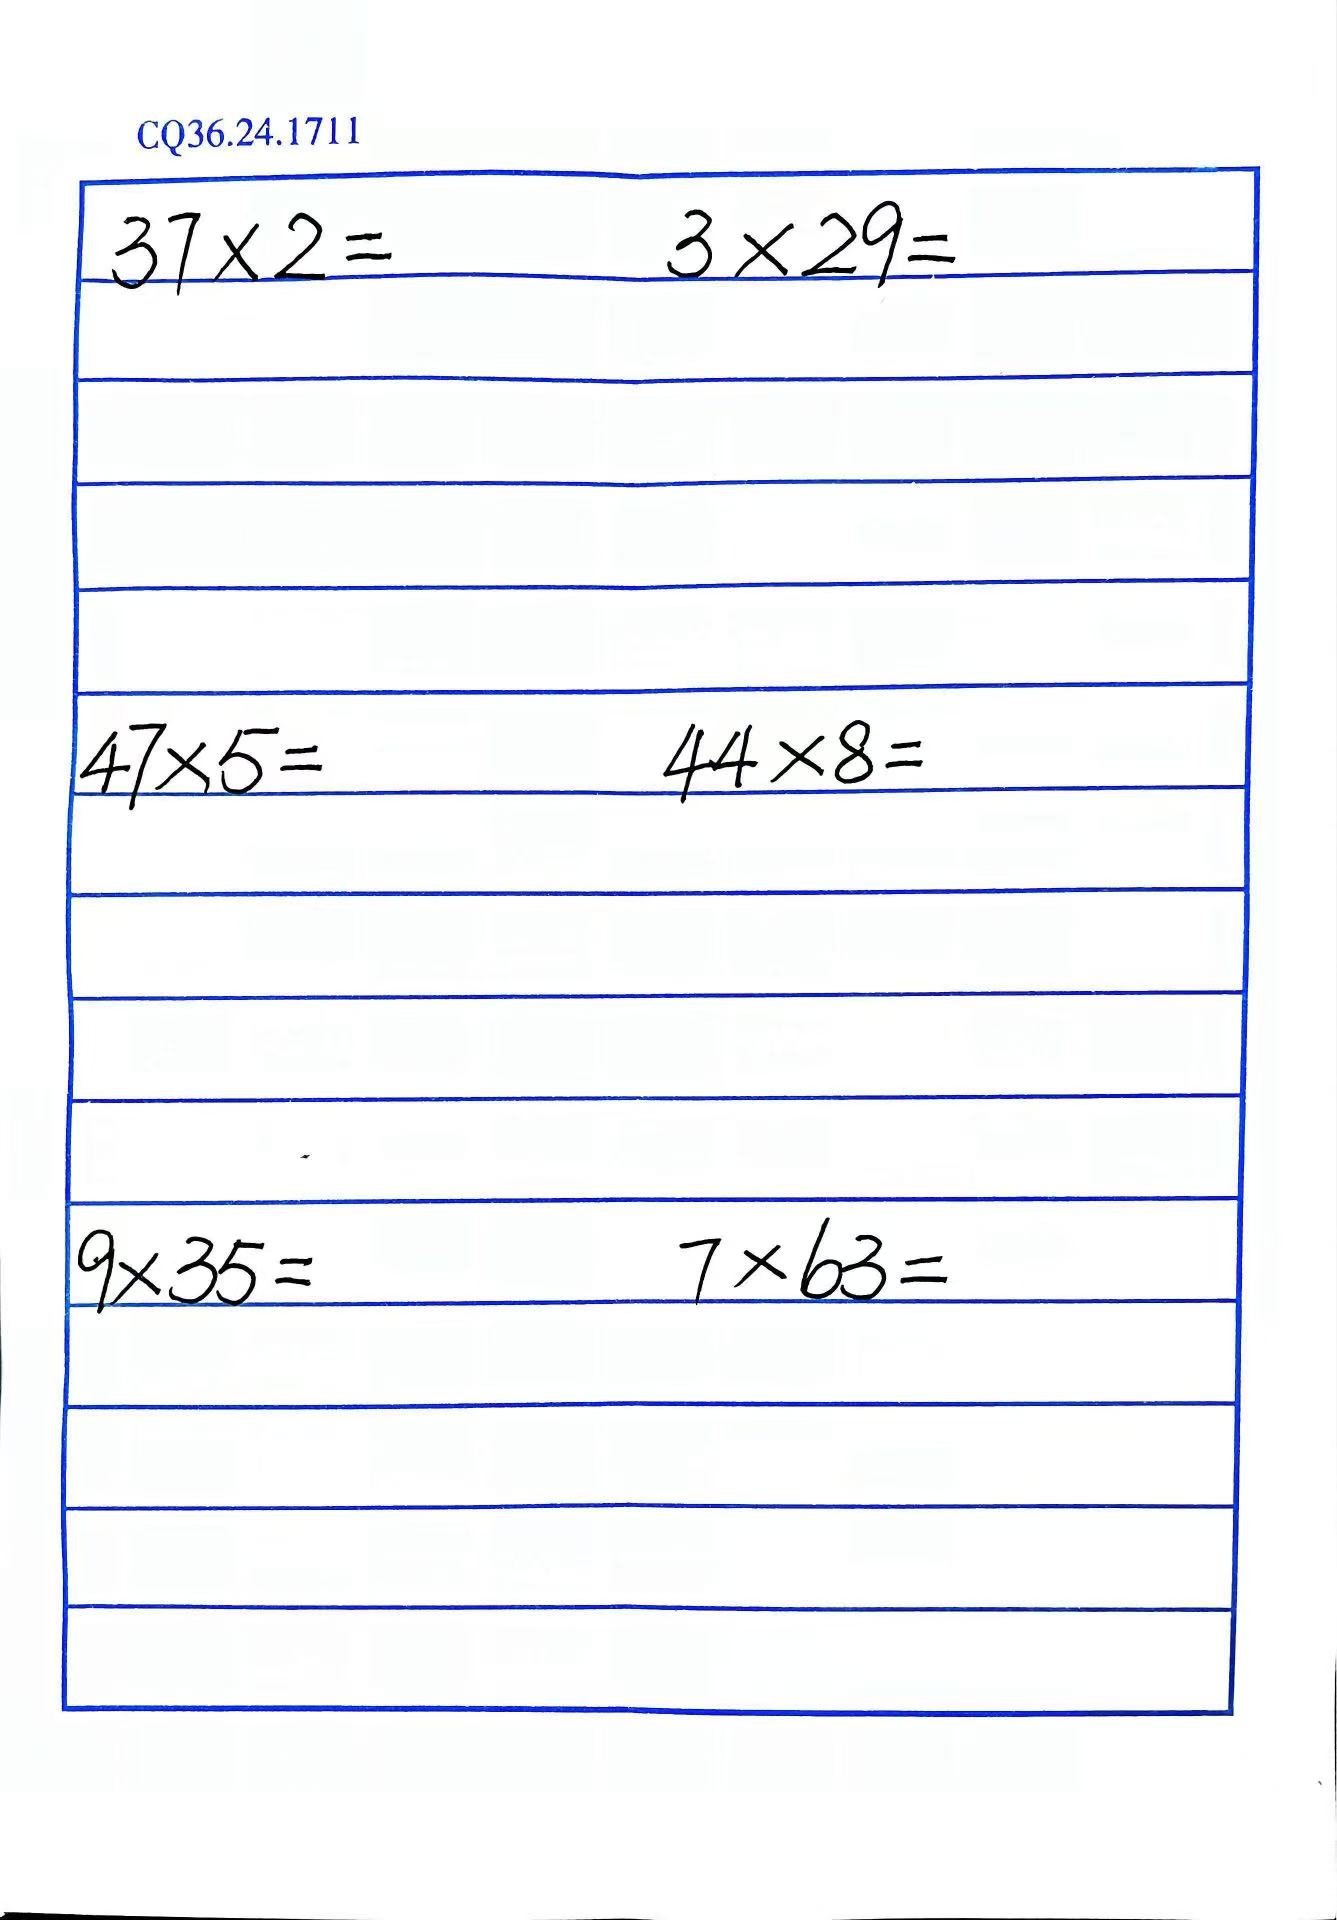 CQ36.24.1711
37×2= 3×29=
47×5= 44×8=
9×35= 7×63=